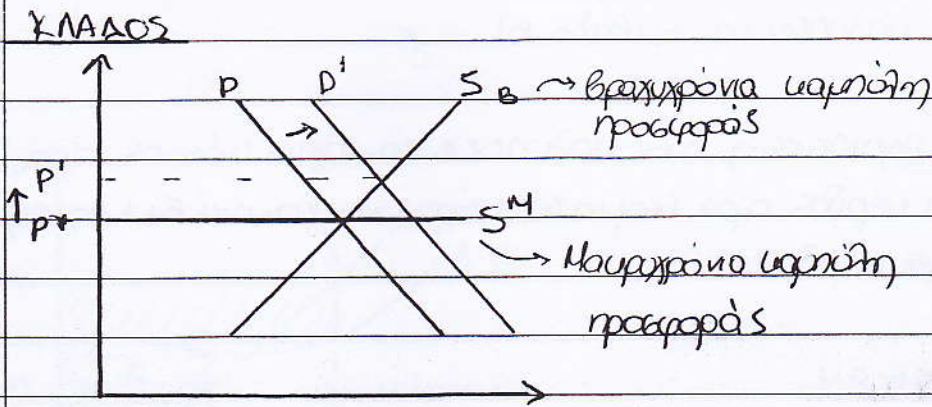 ΚΛΑΔΟΣ
D D' S_B → βραχυχρόνια καμπύλη
προσφοράς
P'
P*
S^M
→ Μακροχρόνια καμπύλη
προσφοράς